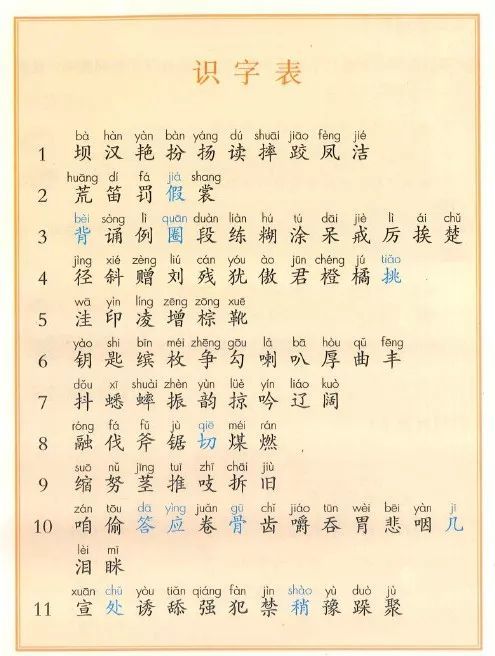 识字表
bà hàn yàn bàn yáng dú shuāi jiāo fèng jié
1 坝 汉 艳 扮 扬 读 摔 跤 凤 洁
huāng dí fá jià shang
2 荒 笛 罚 假 裳
bèi sòng lì quān duàn liàn hú tú dāi jiè lì ái chǔ
3 背 诵 例 圈 段 练 糊 涂 呆 戒 厉 挨 楚
jìng xié zèng liú cán yóu ào jūn chéng jú tiāo
4 径 斜 赠 刘 残 犹 傲 君 橙 橘 挑
wā yìn líng zēng zōng xuē
5 洼 印 凌 增 棕 靴
yào shi bīn méi zhēng gōu lǎ bā hòu qǔ fēng
6 钥 匙 缤 枚 争 勾 喇 叭 厚 曲 丰
dǒu xī shuài zhèn yùn lüè yín liáo kuò
7 抖 蟋 蟀 振 韵 掠 吟 辽 阔
róng fá fǔ jù qiē méi rán
8 融 伐 斧 锯 切 煤 燃
suō nǔ jīng tuī zhī chāi jiù
9 缩 努 茎 推 吱 拆 旧
zán tōu dā yìng juǎn gū chǐ jiáo tūn wèi bēi yàn jǐ
10 咱 偷 答 应 卷 骨 齿 嚼 吞 胃 悲 咽 几
lèi mī
泪 眯
xuān chǔ yòu tiǎn qiáng fàn jìn shào yù duò jù
11 宣 处 诱 舔 强 犯 禁 稍 豫 跺 聚